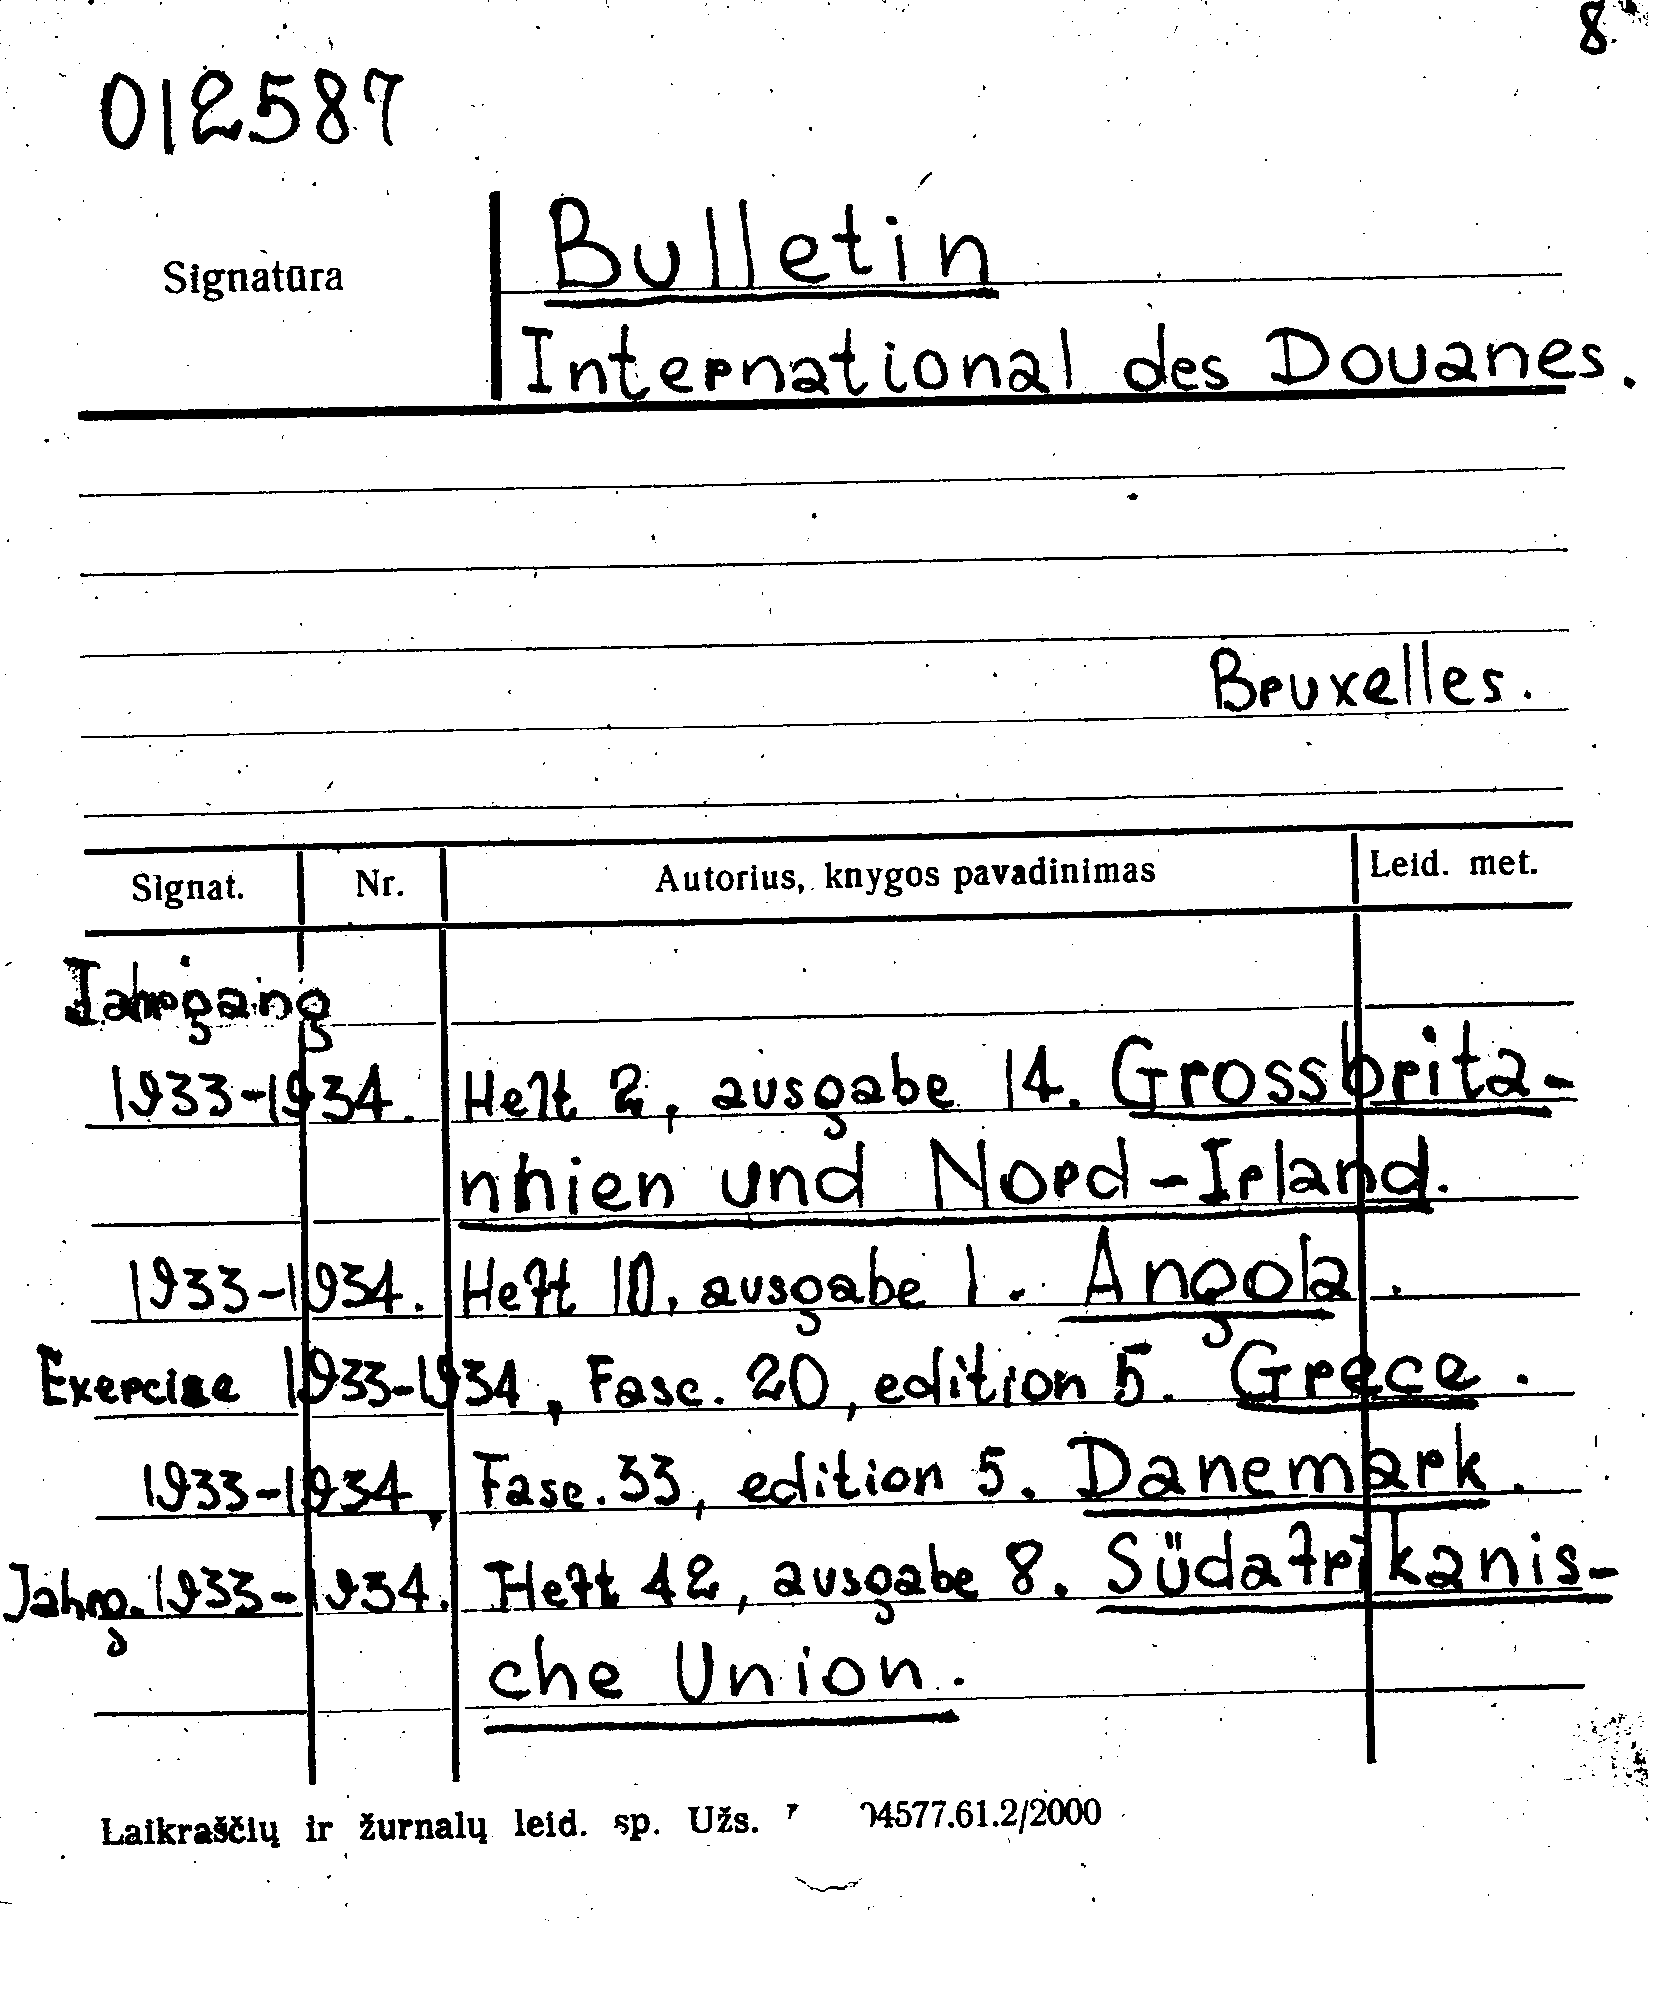 8
012587
Signatūra
Bulletin
International des Douanes.
Bruxelles.
Signat. Nr. Autorius, knygos pavadinimas Leid. met.
Jahrgang
1933-1934. Heft 2, ausgabe 14. Grossbrita-
nnien und Nord-Irland.
1933-1934. Heft 10, ausgabe 1. Angola.
Exercise 1933-1934, Fasc. 20, edition 5. Grece.
1933-1934, Fasc. 33, edition 5. Danemark.
Jahrg. 1933-1934. Heft 42, ausgabe 8. Südafrikanis-
che Union.
Laikraščių ir žurnalų leid. sp. Užs. 4577.61.2/2000